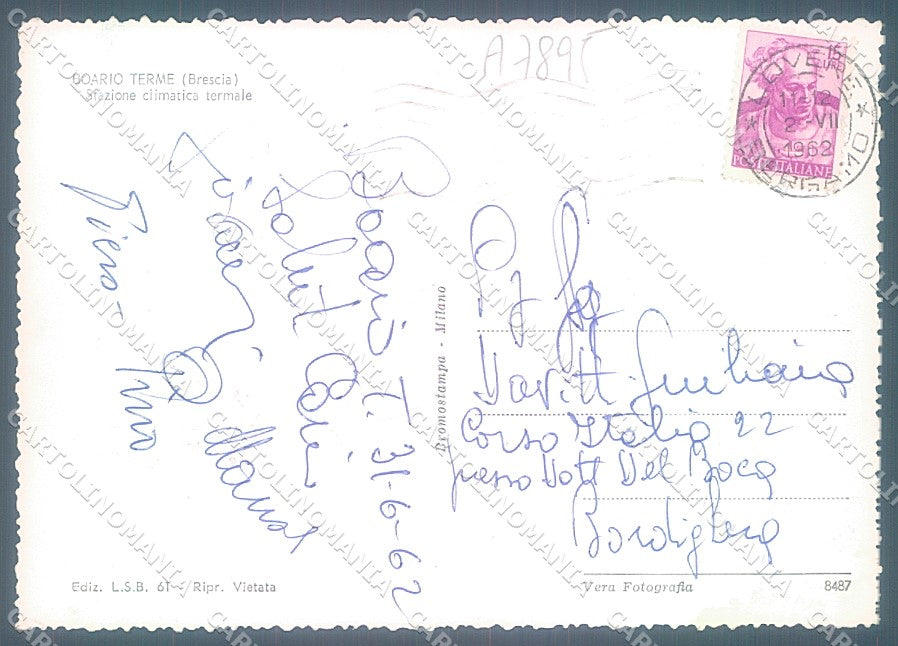 BOARIO TERME (Brescia)
Stazione climatica termale
A7895
15 LIRE
POSTE ITALIANE
LOVERE
11-12
2 -VII
1962
BERGAMO
Boario T. 31-6-62
Saluti Cari
Piero-
Promostampa - Milano
Giuliana
Corso Italia 22
presso Dott Del Boca
Bordighera
Ediz. L.S.B. 61 - Ripr. Vietata
Vera Fotografia
8487
CARTOLINOMANIA